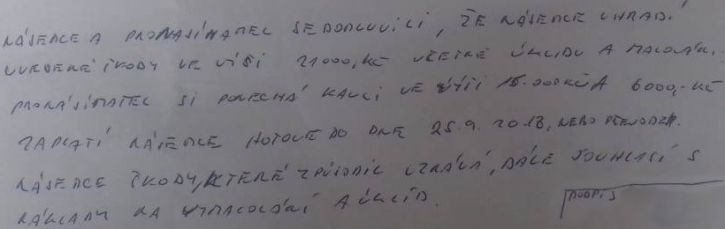 NÁJEMCE A PRONAJÍMATEL SE DOMLUVILI, ŽE NÁJEMCE UHRADÍ
UVEDENÉ ŠKODY VE VÝŠI 21000,KČ VČETNĚ ÚKLIDU A MALOVÁNÍ.
PRONAJÍMATEL SI PONECHÁ KAUCI VE VÝŠI 15.000KČ A 6000,-KČ
ZAPLATÍ NÁJEMCE HOTOVĚ DO DNE 25.9.2018, NEBO PŘEVODEM.
NÁJEMCE ŠKODY, KTERÉ ZPŮSOBIL UZNÁVÁ, DÁLE SOUHLASÍ S
NÁKLADY NA VYMALOVÁNÍ A ÚKLID.
PODPIS